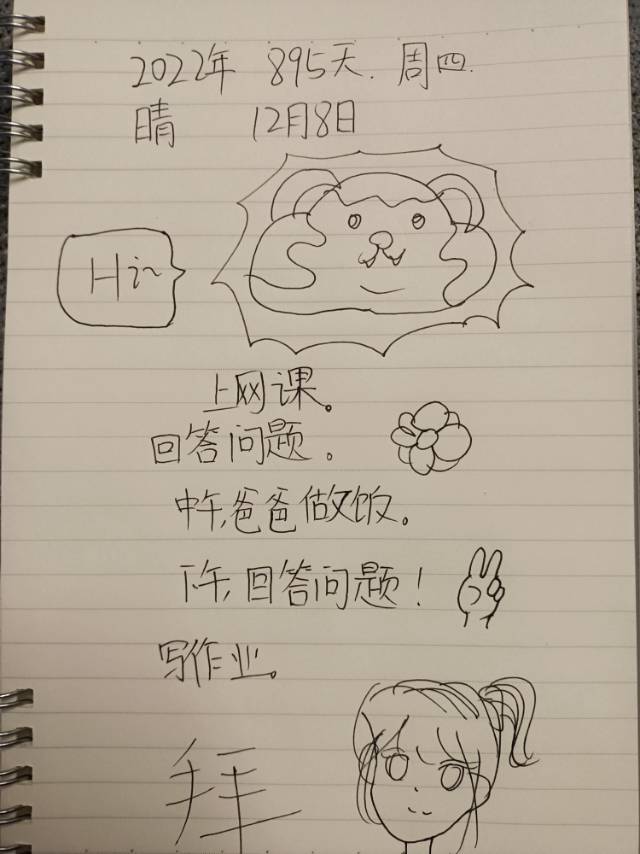 2022年 895天. 周四.
晴 12月8日
Hi~
上网课。
回答问题。
中午,爸爸做饭。
下午,回答问题!
写作业。
拜